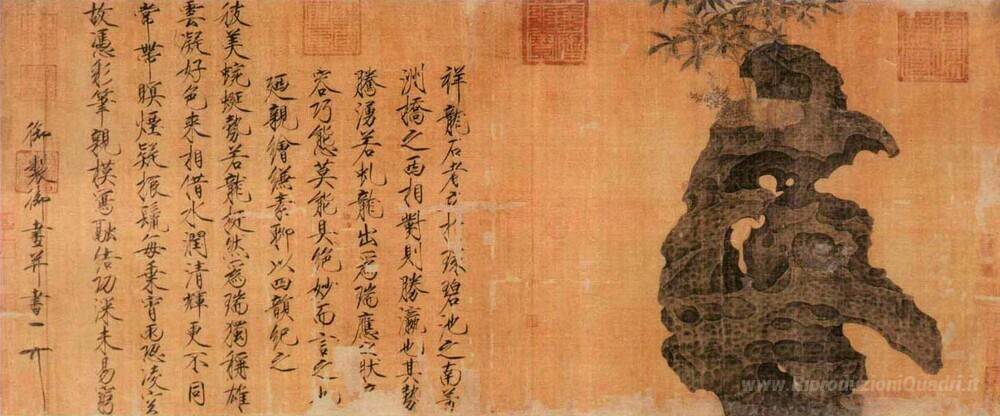 祥龍石者立於環碧池之南芳
洲橋之西相對則勝瀛也其勢
騰湧若虬龍出為瑞應之狀奇
容巧態莫能具絕妙而言之也
廼親繪縑素聊以四韻紀之
彼美蜿蜒勢若龍挺然為瑞獨稱雄
雲凝好色來相借水潤清輝更不同
常帶暝煙疑振鬣每乘宵雨恐凌空
故憑彩筆親模寫融結功深未易窮
御製御畫并書
www.RiproduzioniQuadri.it